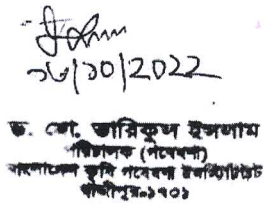 ১৮/১০/2022
ড. মো. তারিকুল ইসলাম
পরিচালক (গবেষণা)
বাংলাদেশ কৃষি গবেষণা ইনস্টিটিউট
গাজীপুর-১৭০১